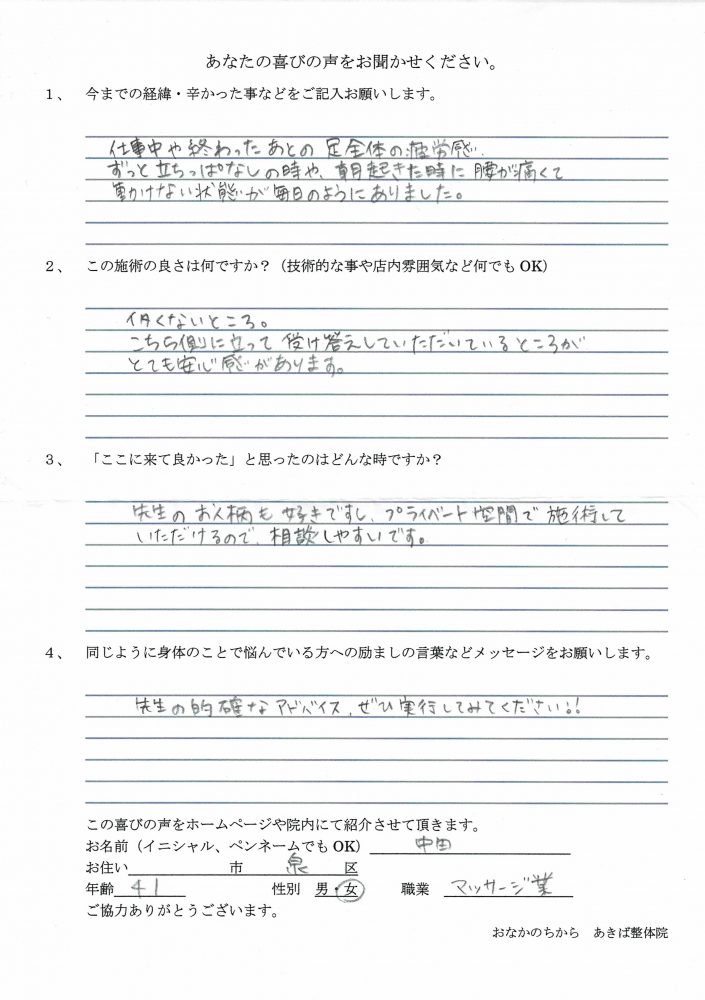 あなたの喜びの声をお聞かせください。
1、 今までの経緯・辛かった事などをご記入お願いします。
仕事中や終わったあとの足全体の疲労感、
ずっと立ちっぱなしの時や、朝起きた時に腰が痛くて
動けない状態が毎日のようにありました。
2、 この施術の良さは何ですか？（技術的な事や店内雰囲気など何でもOK）
痛くないところ。
こちら側に立って受け答えしていただいているところが
とても安心感があります。
3、 「ここに来て良かった」と思ったのはどんな時ですか？
先生のお人柄も好きですし、プライベート空間で施術して
いただけるので、相談しやすいです。
4、 同じように身体のことで悩んでいる方への励ましの言葉などメッセージをお願いします。
先生の的確なアドバイス、ぜひ実行してみてください!!
この喜びの声をホームページや院内にて紹介させて頂きます。
お名前（イニシャル、ペンネームでもOK） 中田
お住い 市 泉 区
年齢 41 性別 男・女 職業 マッサージ業
ご協力ありがとうございます。
おなかのちから あきば整体院